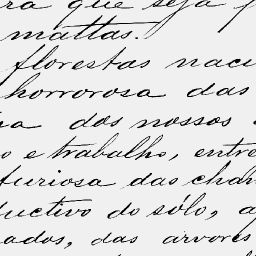 que seja
mattas.
florestas
horrorosa das
dos nossos
e trabalho, entre
furiosa das
do sólo,
das arvores